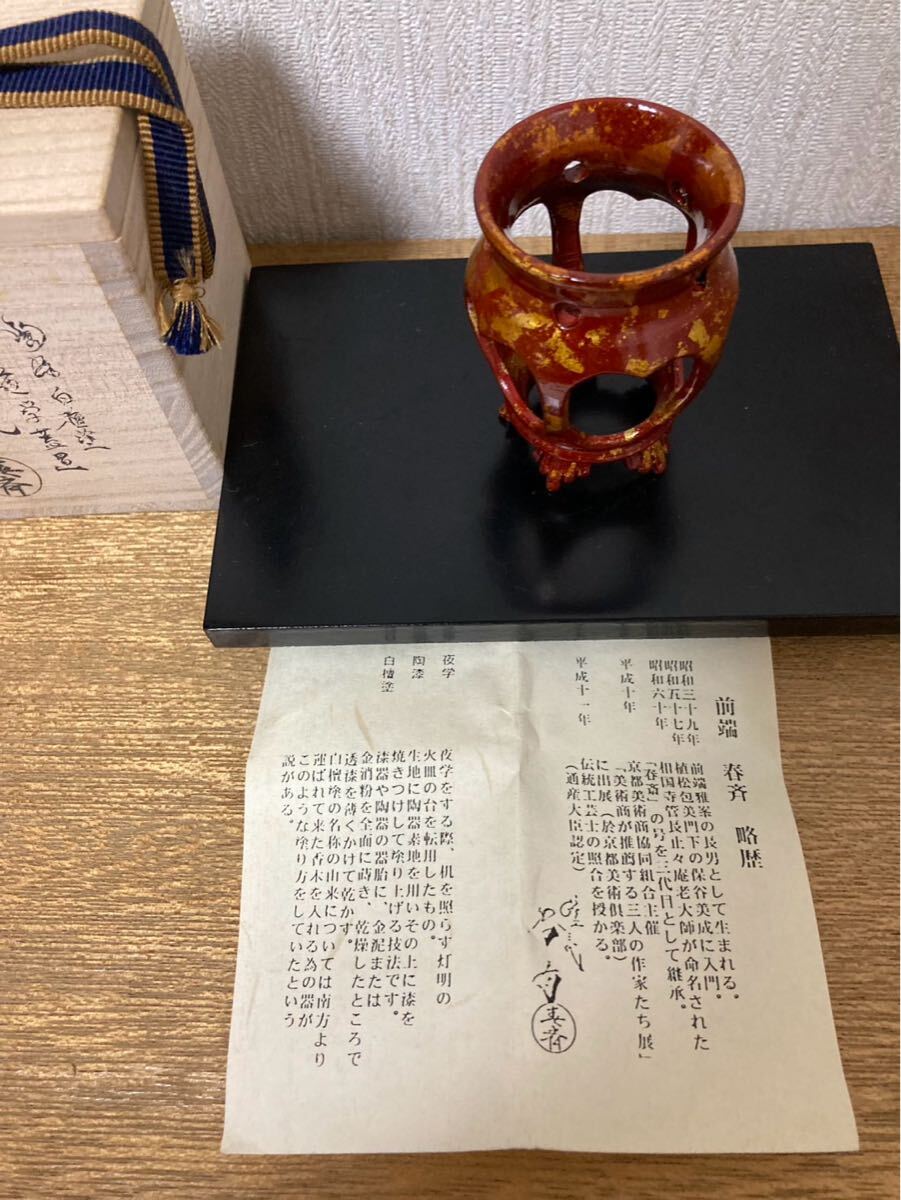 前端 春斉 略歴
昭和三十九年 前端雅峯の長男として生まれる。
昭和五十七年 植松包美門下の保谷美成に入門。
昭和六十年 相国寺管長止々庵老大師が命名された
「春斎」の号を三代目として継承。
平成十年 京都美術商協同組合主催
「美術商が推薦する三人の作家たち展」
に出展(於京都美術倶楽部)
平成十一年 伝統工芸士の照合を授かる。
(通産大臣認定)
春斉
夜学 夜学をする際、机を照らす灯明の
火皿の台を転用したもの。
陶漆 生地に陶器素地を用いその上に漆を
焼きつけして塗り上げる技法です。
白檀塗 漆器や陶器の器胎に、金泥または
金消粉を全面に蒔き、乾燥したところで
透漆を薄くかけて乾かす。
白檀塗の名称の由来については南方より
運ばれて来た香木を入れる為の器が
このような塗り方をしていたという
説がある。
白檀塗
夜学蓋置